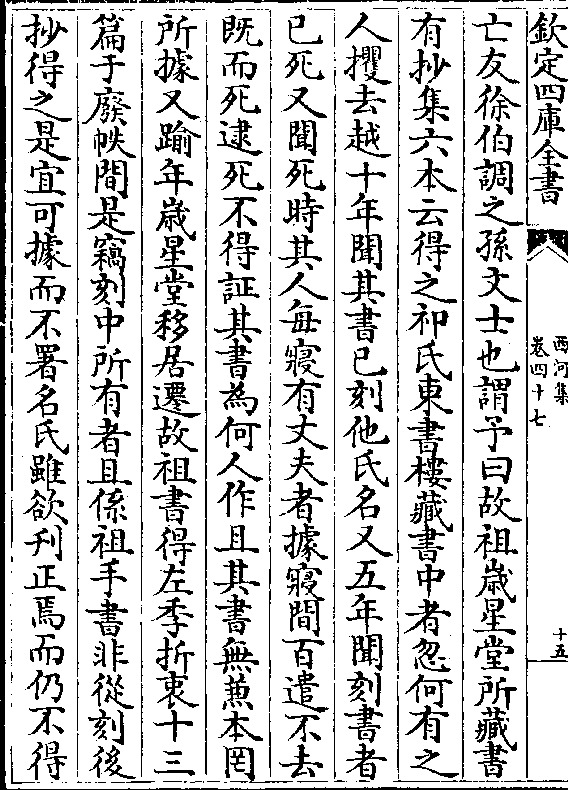 欽定四庫全書
西河集
卷四十七
十五
亡友徐伯調之孫文士也謂予曰故祖嵗星堂所藏書
有抄集六本云得之祁氏東書樓藏書中者忽何有之
人攫去越十年聞其書已刻他氏名又五年聞刻書者
已死又聞死時其人每寢有丈夫者據寢間百遣不去
既而死逮死不得証其書為何人作且其書無兼本罔
所據又踰年嵗星堂移居遷故祖書得左季折衷十三
篇于廢帙間是竊刻中所有者且係祖手書非從刻後
抄得之是宜可據而不署名氏雖欲刋正焉而仍不得